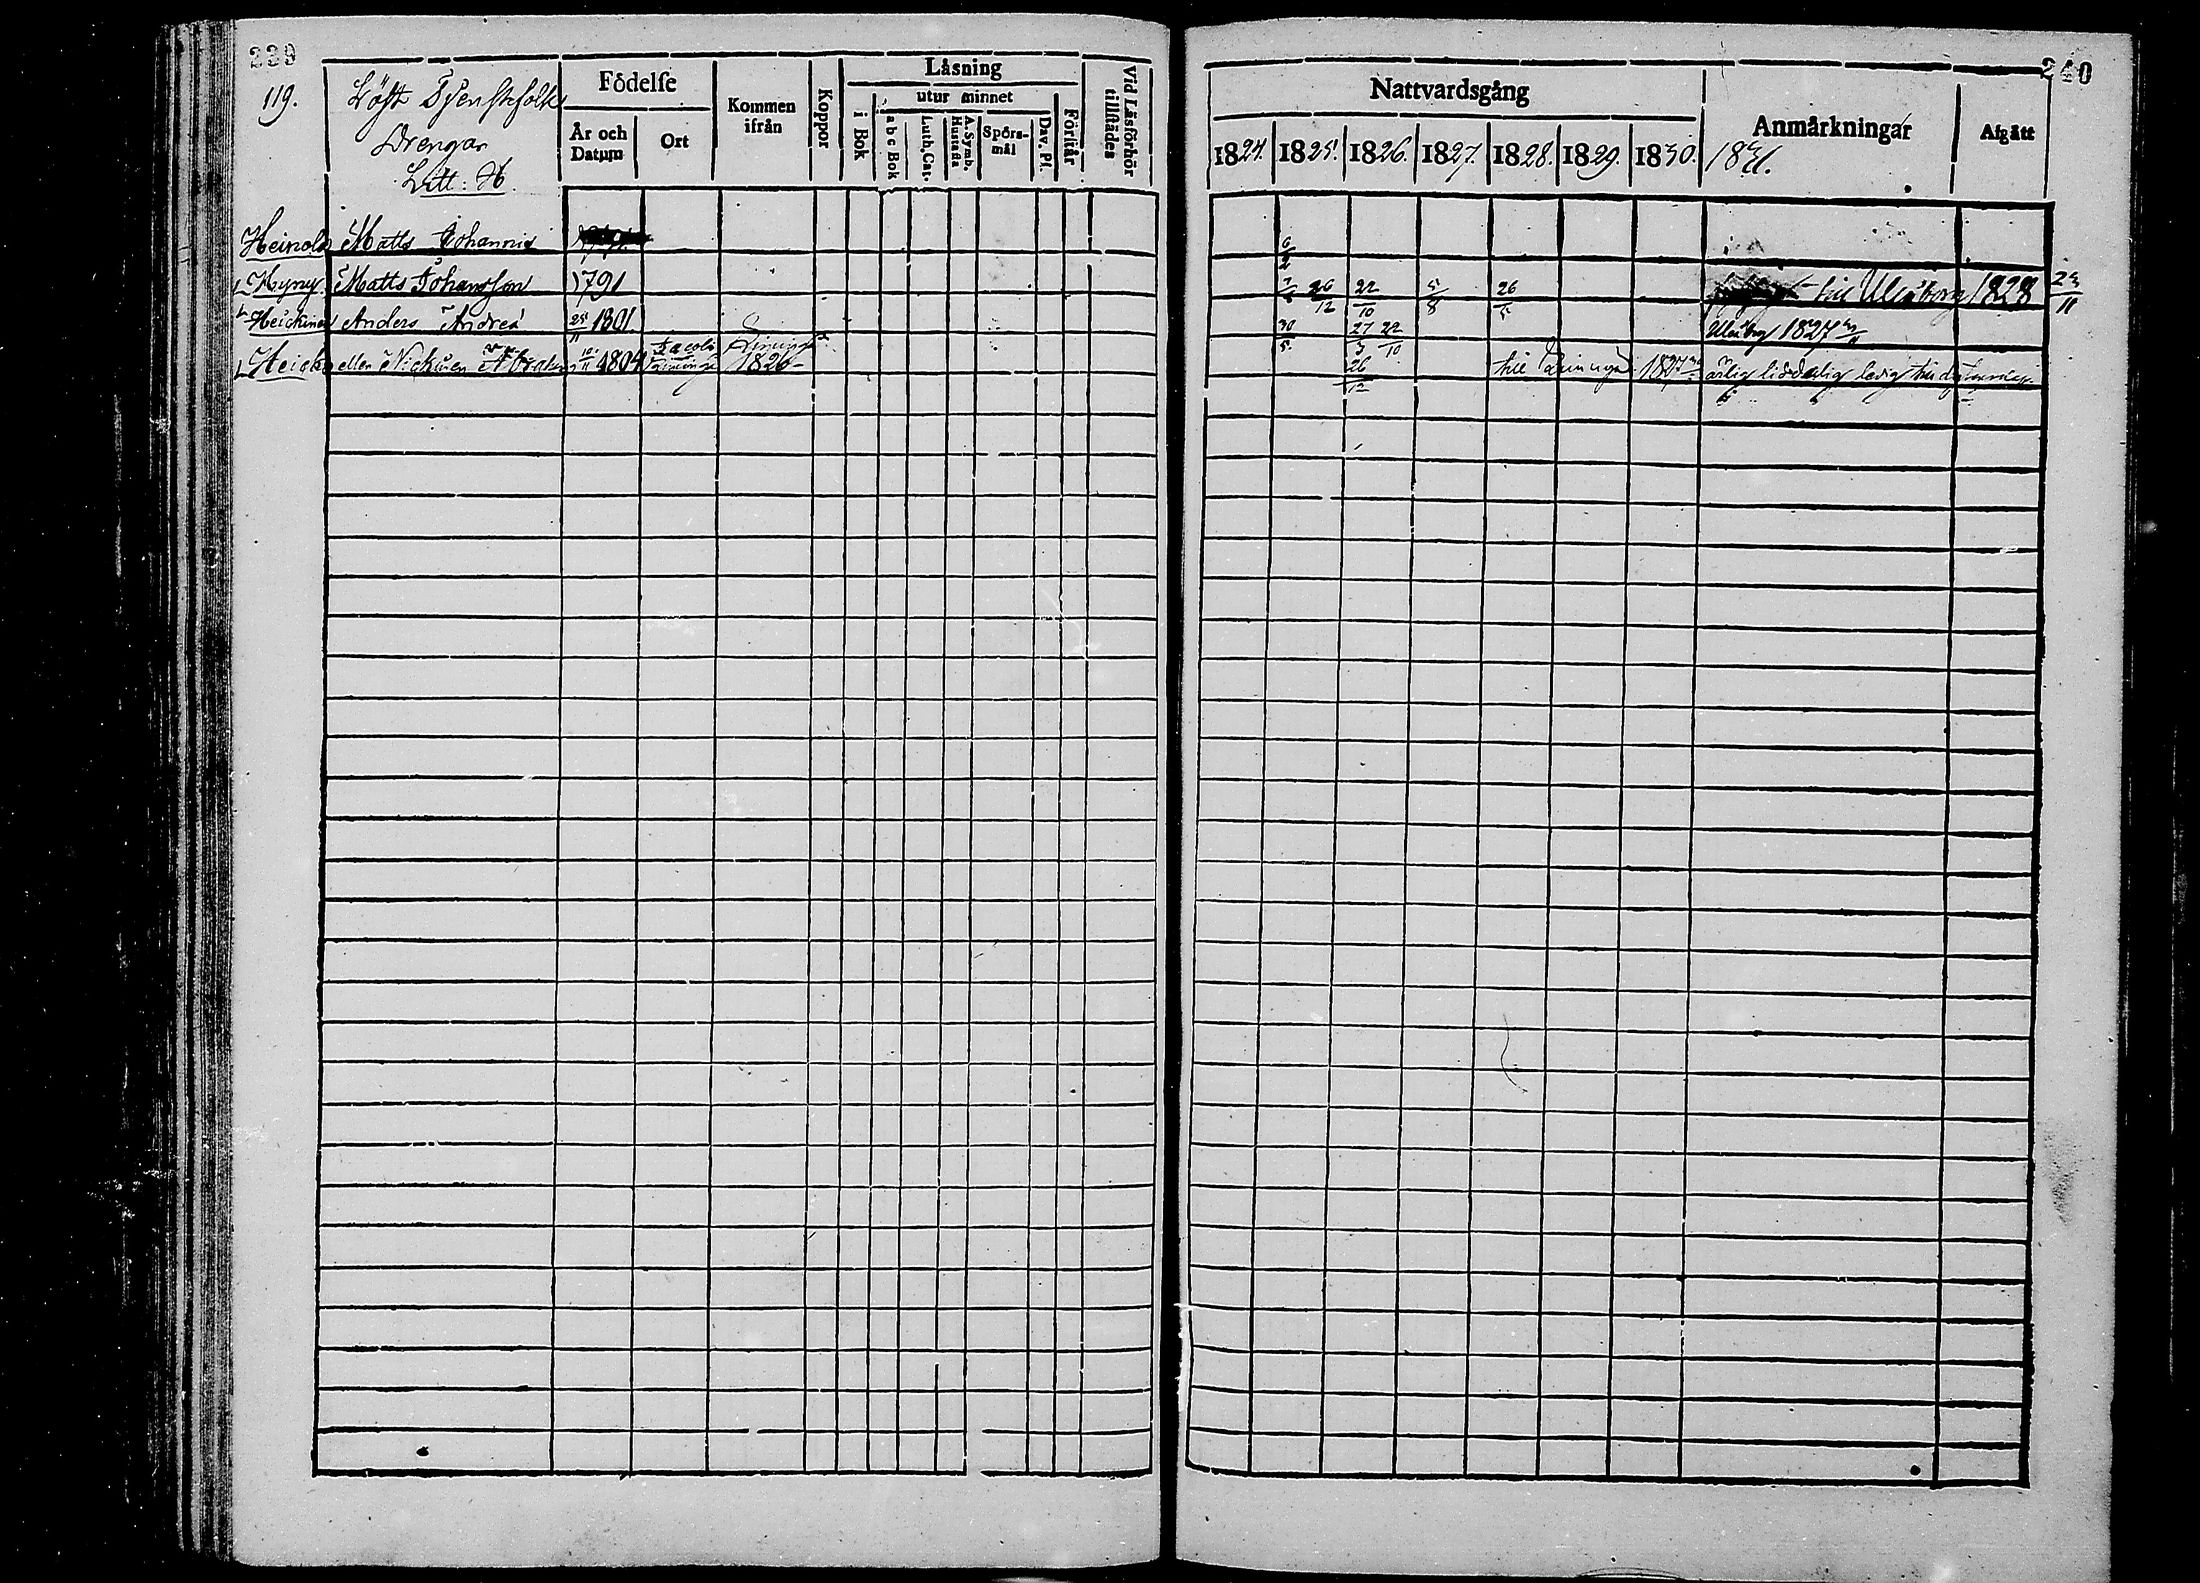 239
119.
Löst Tjenstefolk
Drengar
Litt: H.
Födelse
År och Datum
Ort
Kommen ifrån
Koppor
Läsning
i Bok
utur minnet
a b c Bok
Luth. Cat.
A. Symb. Hustafla
Spörsmål
Dav. Ps.
Förstår
Vid Läsförhör tillstädes
Heinola Matts Johannis
Hyny. Matts Johansson 1791
Heickinen Anders Andres 25/11 1801
Heick eller Nickinen 1804 1826
240
Nattvardsgång
1824. 1825. 1826. 1827. 1828. 1829. 1830.
Anmärkningar
1831.
Afgått
6/2
26/12 22/10 5/8 26/5 till Uleåborg 1828 23/11
30/5 27/3 22/10 Uleåborg 1827
26/12 till 1827 ärlig liddelig ledig till